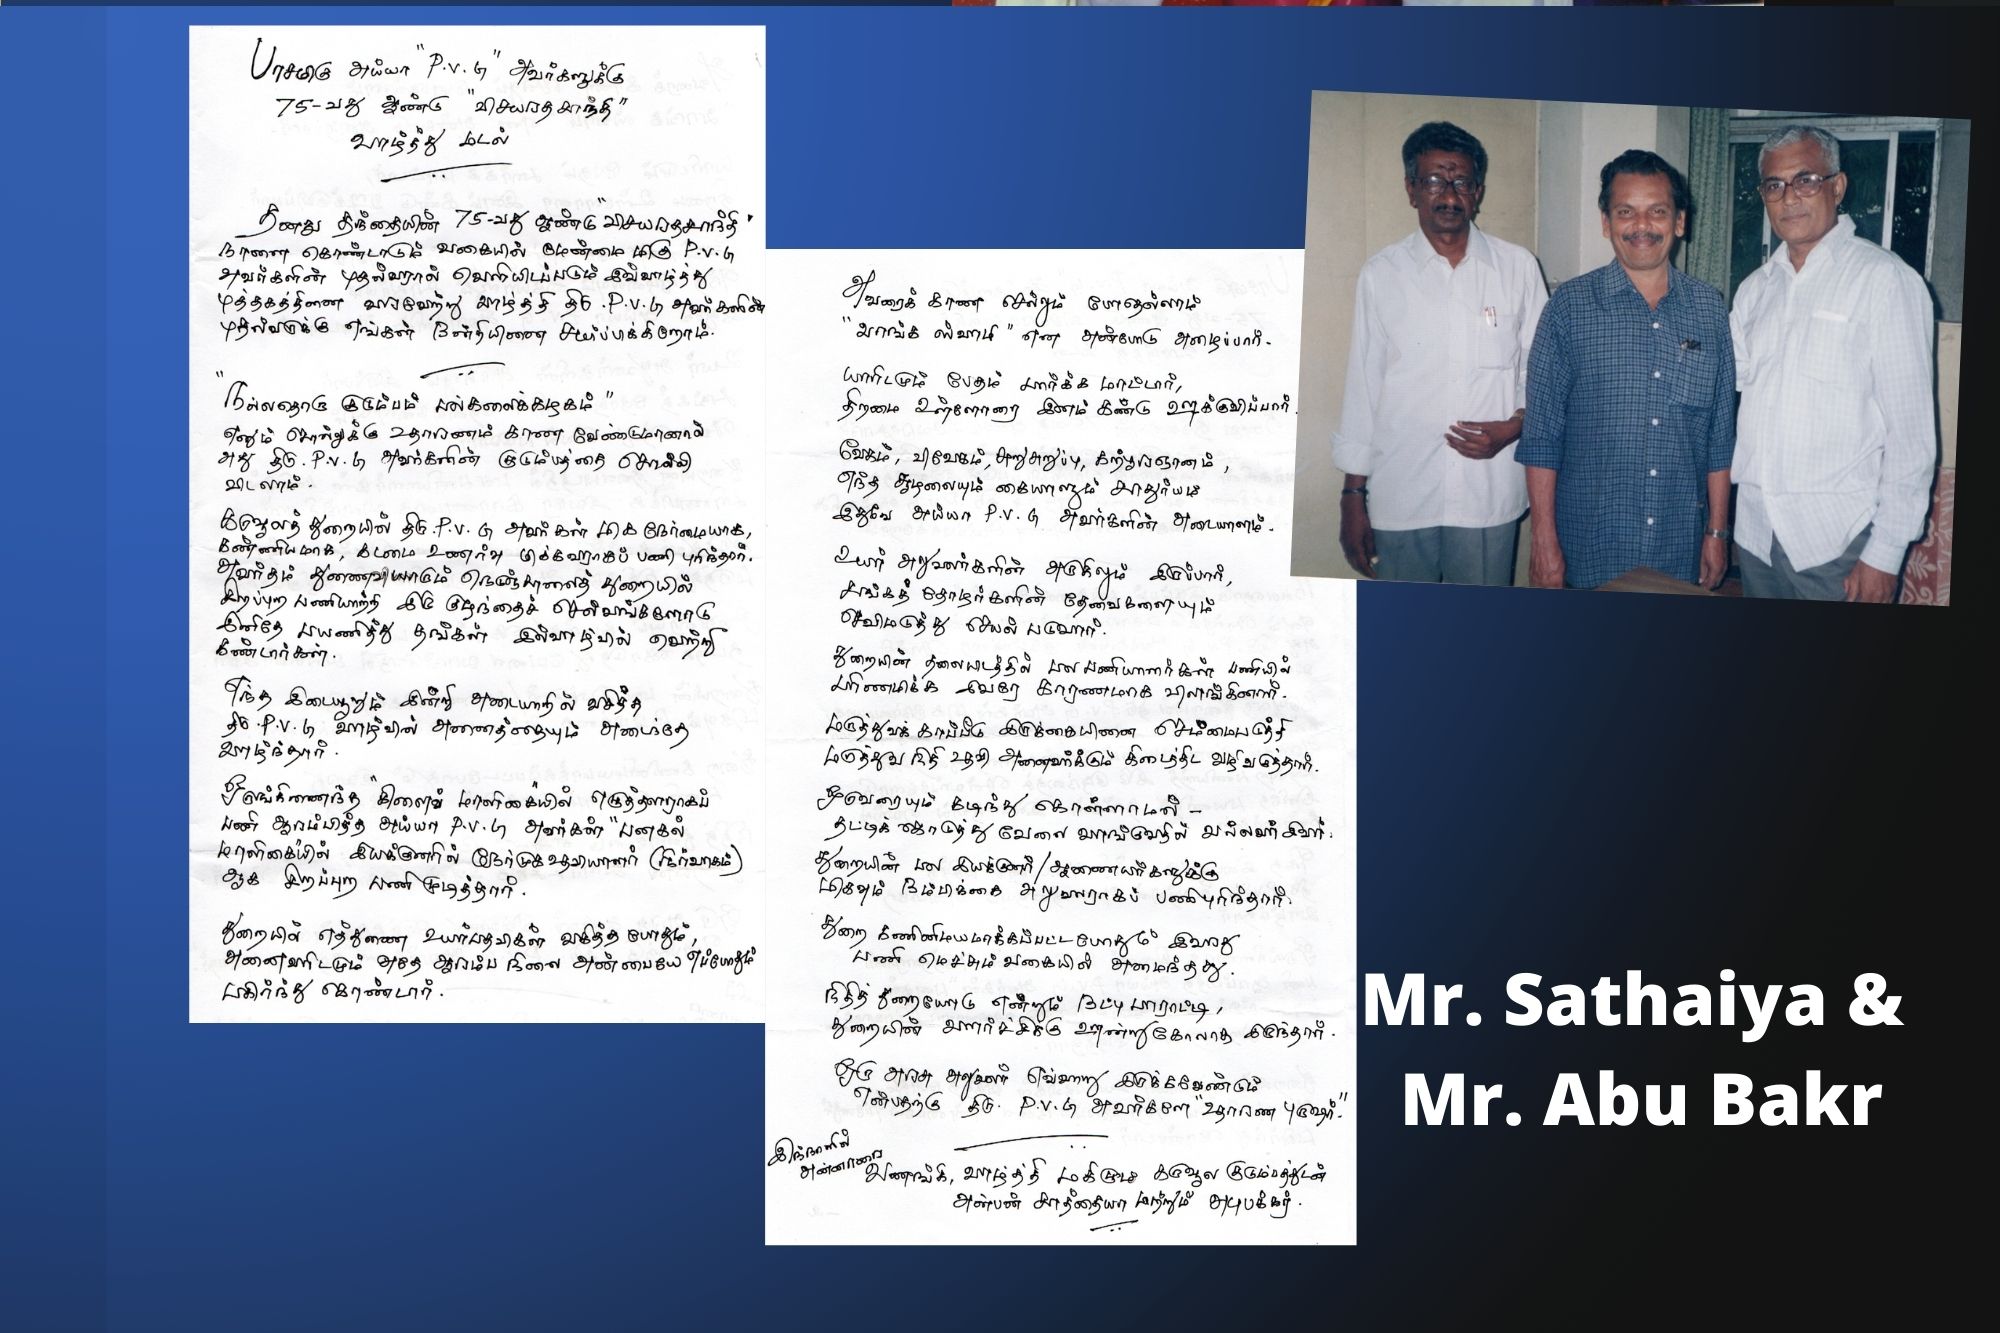 பாசமிகு அய்யா "P.V.G" அவர்களுக்கு
75-வது ஆண்டு "விசயரதசாந்தி"
வாழ்த்து மடல்
தனது தந்தையின் 75-வது ஆண்டு "விசயரதசாந்தி"
நாளை கொண்டாடும் வகையில் மேன்மை மிகு P.V.G
அவர்களின் புதல்வரால் வெளியிடப்படும் இவ்வாழ்த்து
புத்தகத்தினை வரவேற்று வாழ்த்தி திரு. P.V.G அவர்களின்
புதல்வருக்கு எங்கள் நன்றியினை சமர்ப்பிக்கிறோம்.
"நல்லதொரு குடும்பம் பல்கலைக்கழகம்"
எனும் சொல்லுக்கு உதாரணம் காண வேண்டுமானால்
அது திரு. P.V.G அவர்களின் குடும்பத்தை சொல்லி
விடலாம்.
கருவூலத் துறையின் திரு. P.V.G அவர்கள் மிக நேர்மையாக,
கண்ணியமாக, கடமை உணர்வு மிக்கவராகப் பணி புரிந்தார்.
அவர்தம் துணைவியாரும் நெடுஞ்சாலைத் துறையில்
சிறப்புற பணியாற்றி இரு குழந்தைச் செல்வங்களோடு
இனிதே பயணித்து தங்கள் இல்வாழ்வில் வெற்றி
கண்டார்கள்.
எந்த இடையூறும் இன்றி அடையாறில் வசித்த
திரு. P.V.G வாழ்வின் அனைத்தையும் அடைந்தே
வாழ்ந்தார்.
ஒருங்கிணைந்த "கிளைவ் மாளிகை"யில் எழுத்தராகப்
பணி ஆரம்பித்த அய்யா P.V.G அவர்கள் "பனகல்
மாளிகை"யில் இயக்குனரின் நேர்முக உதவியாளர் (நிர்வாகம்)
ஆக சிறப்புற பணி முடித்தார்.
துறையில் எத்துணை உயர்பதவிகள் வகித்த போதும்,
அனைவரிடமும் அதே ஆரம்ப நிலை அன்பையே எப்போதும்
பகிர்ந்து கொண்டார்.
அவரைக் காண செல்லும் போதெல்லாம்
"வாங்க ஸ்வாமி" என அன்போடு அழைப்பார்.
யாரிடமும் பேதம் பார்க்க மாட்டார்,
திறமை உள்ளோரை இனம் கண்டு ஊக்குவிப்பார்.
வேகம், விவேகம், சுறுசுறுப்பு, கற்பூரஞானம்,
எந்த சூழலையும் கையாளும் சாதுர்யம்
இதுவே அய்யா P.V.G அவர்களின் அடையாளம்.
உயர் அலுவலர்களின் அருகிலும் இருப்பார்,
சங்கத் தோழர்களின் தேவைகளையும்
செவிமடுத்து செயல் படுவார்.
துறையின் தலைமையிடத்தில் பல பணியாளர்கள் பணியில்
பரிணமிக்க இவரே காரணமாக விளங்கினார்.
மருத்துவக் காப்பீடு இருக்கையினை செம்மைபடுத்தி
மருத்துவ நிதி உதவி அனைவர்க்கும் கிடைத்திட வழிவகுத்தார்.
ஒருவரையும் கடிந்து கொள்ளாமல் -
தட்டிக் கொடுத்து வேலை வாங்குவதில் வல்லவர் இவர்.
துறையின் பல இயக்குனர்/ஆணையர்களுக்கு
மிகவும் நம்பிக்கை அலுவலராகப் பணிபுரிந்தார்.
துறை கணினிமயமாக்கப்பட்டபோதும் இவரது
பணி மெச்சும் வகையில் அமைந்தது.
நிதித் துறையோடு என்றும் நட்பு பாராட்டி,
துறையின் வளர்ச்சிக்கு ஊன்றுகோலாக இருந்தார்.
ஒரு அரசு அலுவலர் எவ்வாறு இருக்கவேண்டும்
என்பதற்கு திரு. P.V.G அவர்களே "உதாரண புருஷர்."
இந்நாளில்
அன்னாரை வணங்கி, வாழ்த்தி மகிழும் கருவூல குடும்பத்துடன்
அன்பன் சாத்தையா மற்றும் அபுபக்கர்.
Mr. Sathaiya &
Mr. Abu Bakr